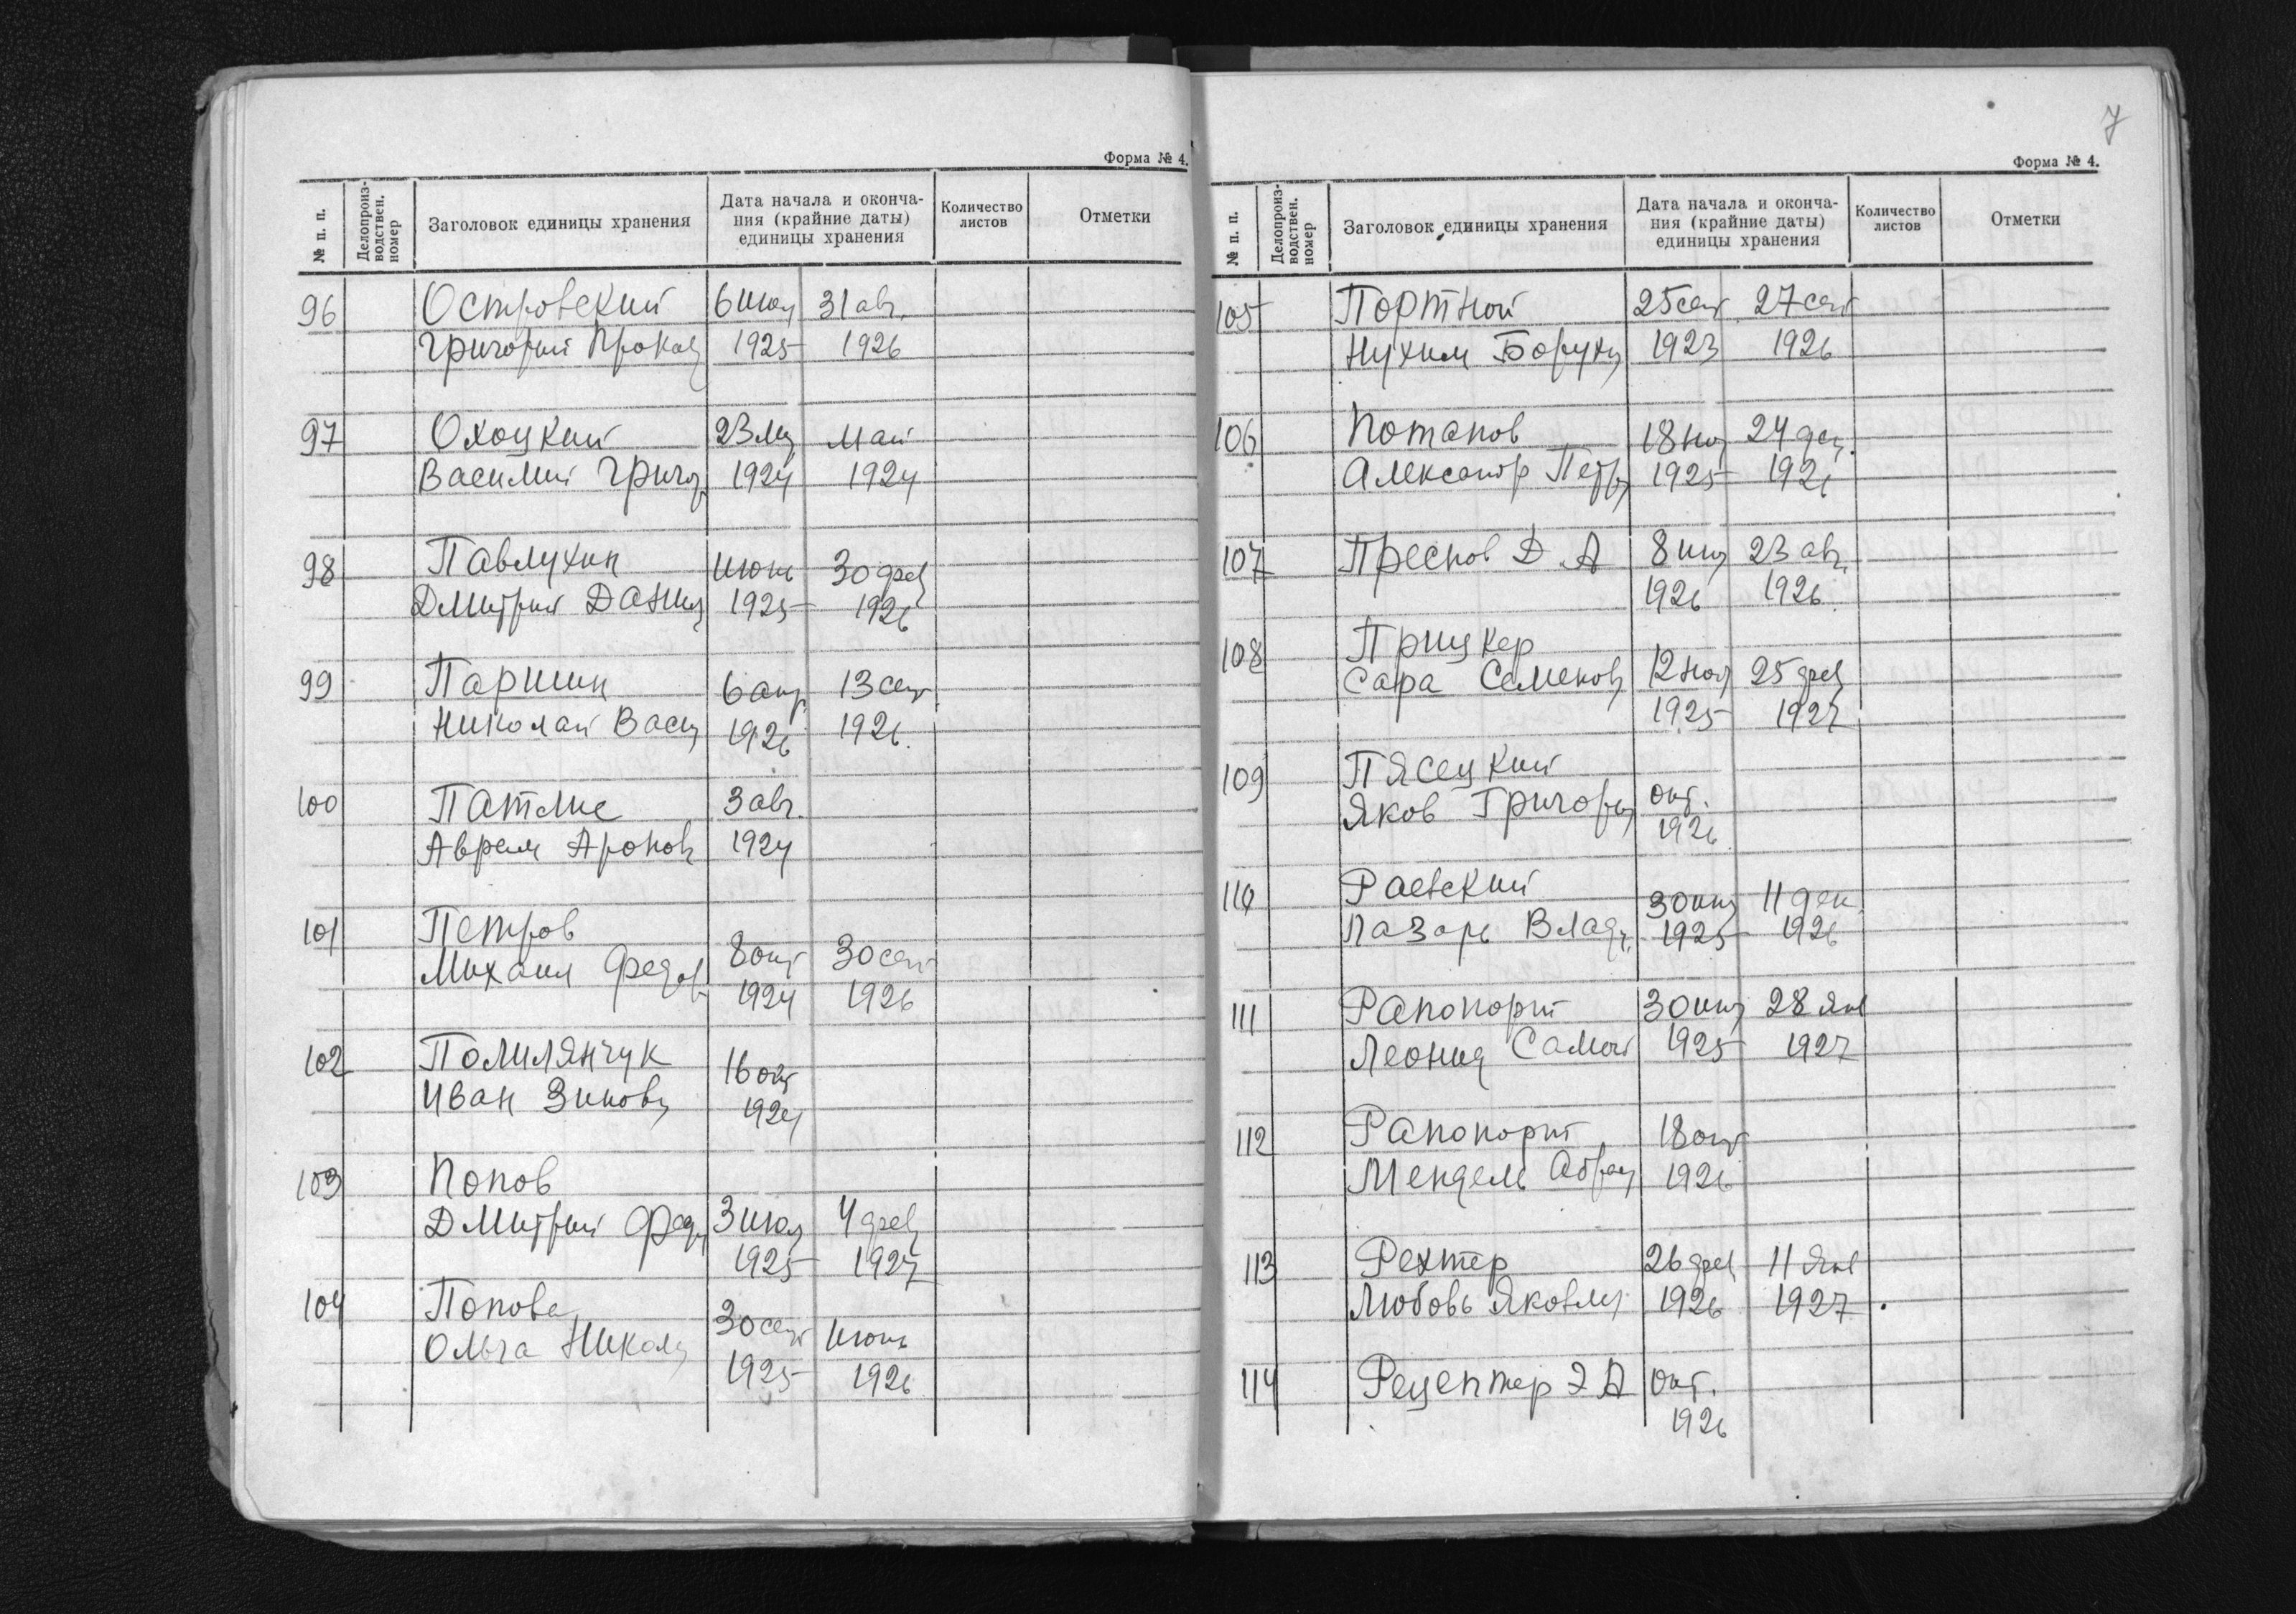 Форма № 4.
№ п. п.
Делопроиз-
водствен.
номер
Заголовок единицы хранения
Дата начала и оконча-
ния (крайние даты)
единицы хранения
Количество
листов
Отметки
96 Островский 6 июл 31 авг.
Григорий Проков 1925 1926
97 Охоцкий 23 май
Василий Григор 1924 1924
98 Павлухин июнь 30 фев
Дмитрий Данил 1925 1926
99 Паршин 6 апр. 13 сент
Николай Васи 1926 1926.
100 Патлис 3 авг.
Аврам Аронов 1924
101 Петров
Михаил Федор 8 окт 30 сент
1924 1926
102 Полилянчук 16 окт
Иван Зинов 1924
103 Попов
Дмитрий Фед 3 июл 4 фев
1925 1927
104 Попова 30 сент июнь
Ольга Никол 1925 1926
7
Форма № 4.
№ п. п.
Делопроиз-
водствен.
номер
Заголовок единицы хранения
Дата начала и оконча-
ния (крайние даты)
единицы хранения
Количество
листов
Отметки
105 Портной 25 сент 27 сент
Нухим Борух 1923 1926
106 Потапов 18 ноя 24 дек.
Александр Петр 1925 1926
107 Преснов Д А 8 23 авг.
1926 1926.
108 Прицкер
Сара Семенов 12 ноя 25 фев
1925 1927
109 Пясецкий
Яков Григорь окт.
1926
110 Раевский 30 11 дек.
Лазарь Влад. 1925 1926
111 Рапопорт 30 28 янв
Леонид Самой 1925 1927
112 Рапопорт 18 окт
Мендель Абрам 1926
113 Рехтер 26 фев 11 янв
Любовь Яковл 1926 1927
114 Рецептер Э А окт.
1926